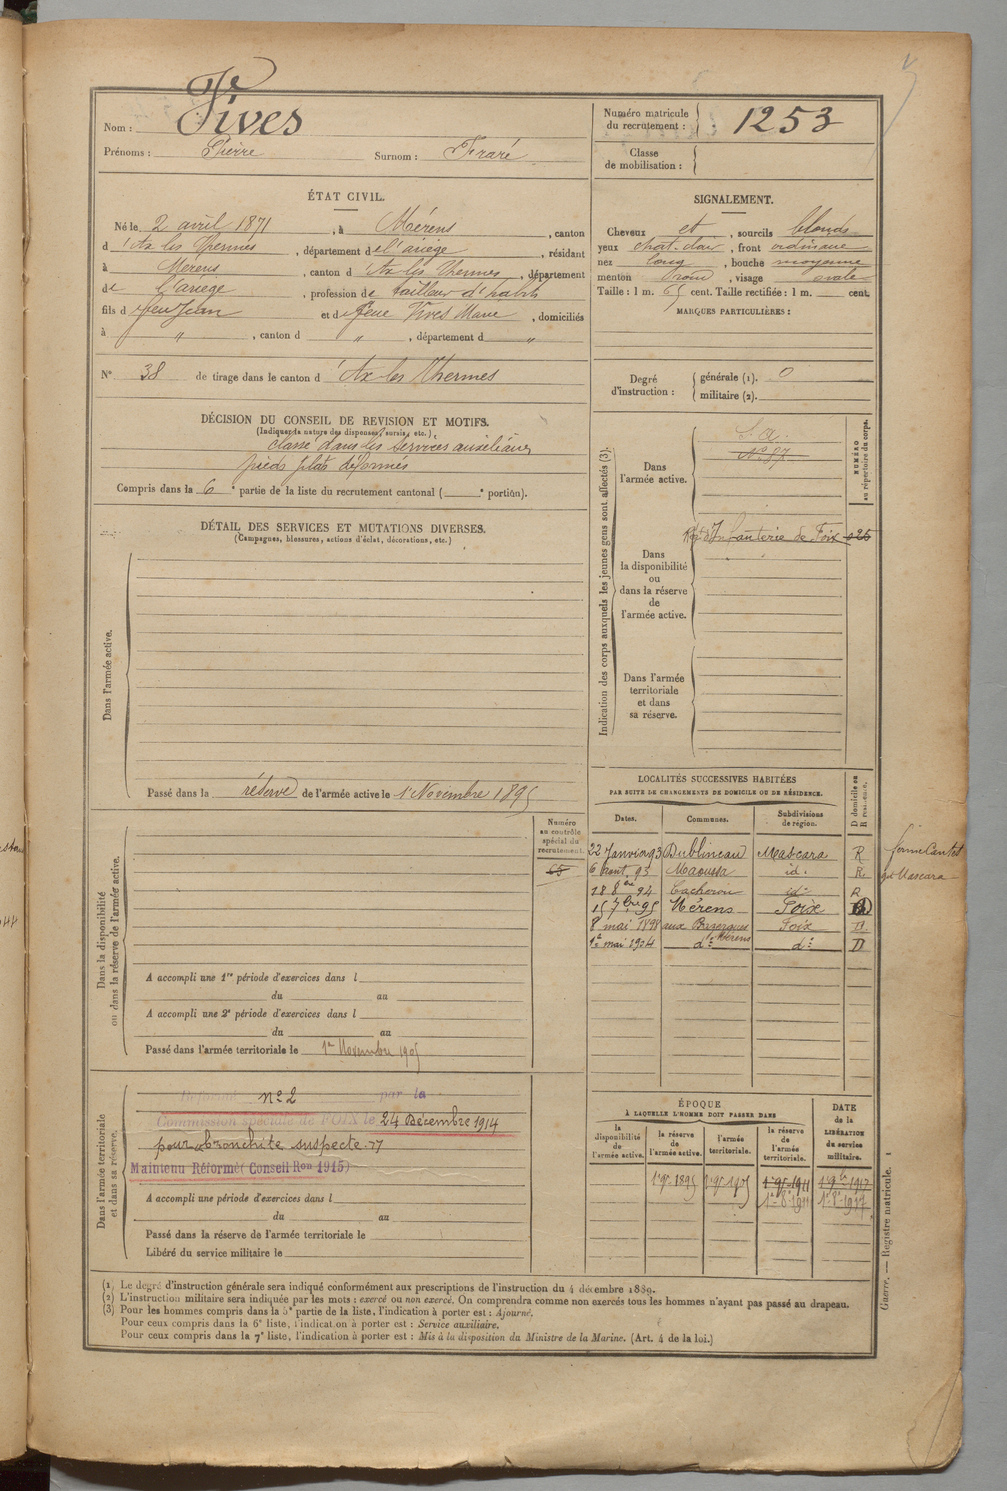 Nom : Vives
Prénoms : Pierre Surnom : Fraré
Numéro matricule du recrutement : 1253
Classe de mobilisation :
ÉTAT CIVIL.
Né le 2 avril 1871, à Mérens, canton
d'Ax les Thermes, département de l'ariège, résidant
à Mérens, canton d'Ax les Thermes, département
de l'ariège, profession de tailleur d'habits
fils de feu Jean et de feue Vives Marie, domiciliés
à ", canton d ", département d "
N° 38 de tirage dans le canton d'Ax les Thermes
SIGNALEMENT.
Cheveux et, sourcils blonds
yeux chat. clair, front ordinaire
nez long, bouche moyenne
menton rond, visage ovale
Taille : 1 m. 65 cent. Taille rectifiée : 1 m. cent.
MARQUES PARTICULIÈRES :
Degré d'instruction : générale (1). 0
militaire (2).
DÉCISION DU CONSEIL DE REVISION ET MOTIFS.
(Indiquer la nature des dispenses, sursis, etc.)
classé dans les services auxiliaires
pieds plats déformés
Compris dans la 6e partie de la liste du recrutement cantonal ( e portion).
DÉTAIL DES SERVICES ET MUTATIONS DIVERSES.
(Campagnes, blessures, actions d'éclat, décorations, etc.)
Dans l'armée active.
Passé dans la réserve de l'armée active le 1 Novembre 1895
Indication des corps auxquels les jeunes gens sont affectés (3).
NUMÉRO au répertoire du corps.
Dans l'armée active.
S. A.
N° 97
Rgt d'Infanterie de Foix
Dans la disponibilité ou dans la réserve de l'armée active.
Dans l'armée territoriale et dans sa réserve.
LOCALITÉS SUCCESSIVES HABITÉES
PAR SUITE DE CHANGEMENTS DE DOMICILE OU DE RÉSIDENCE.
D domicile ou R résidence.
Dates. Communes. Subdivisions de région.
22 Janvier 93 Dublineau Mascara R
6 Août 93 Maoussa id. R
18 8bre 94 Cacherou id. R
15 7bre 95 Mérens Foix
8 mai 1898 aux Bazerques Foix D
1er mai 1904 d° Mérens d° D
ferme Cantet
Mascara
Numéro au contrôle spécial du recrutement.
Dans la disponibilité ou dans la réserve de l'armée active.
A accompli une 1re période d'exercices dans l
du au
A accompli une 2e période d'exercices dans l
du au
Passé dans l'armée territoriale le 1er Novembre 1905
Dans l'armée territoriale et dans sa réserve.
Réformé n° 2 par la
Commission spéciale de FOIX le 24 Décembre 1914
pour bronchite suspecte
Maintenu Réformé (Conseil Ron 1915)
A accompli une période d'exercices dans l
du au
Passé dans la réserve de l'armée territoriale le
Libéré du service militaire le
ÉPOQUE
À LAQUELLE L'HOMME DOIT PASSER DANS
DATE de la LIBÉRATION du service militaire.
la disponibilité de l'armée active. la réserve de l'armée active. l'armée territoriale. la réserve de l'armée territoriale.
1er 9bre 1895 1er 9bre 1905 1er 9bre 1911 1er 9bre 1917
1er 8bre 1911 1er 8bre 1917
Guerre. — Registre matricule. 1
(1) Le degré d'instruction générale sera indiqué conformément aux prescriptions de l'instruction du 4 décembre 1889.
(2) L'instruction militaire sera indiquée par les mots : exercé ou non exercé. On comprendra comme non exercés tous les hommes n'ayant pas passé au drapeau.
(3) Pour les hommes compris dans la 5e partie de la liste, l'indication à porter est : Ajourné.
Pour ceux compris dans la 6e liste, l'indication à porter est : Service auxiliaire.
Pour ceux compris dans la 7e liste, l'indication à porter est : Mis à la disposition du Ministre de la Marine. (Art. 4 de la loi.)